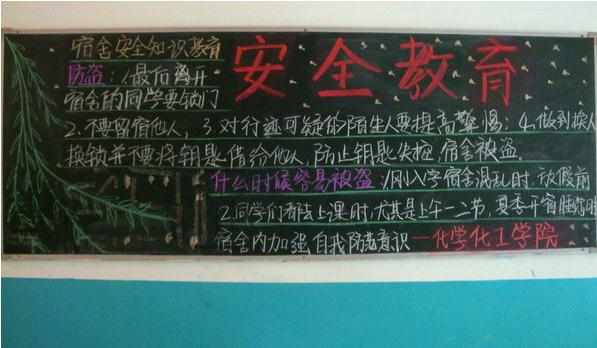 安全教育
宿舍安全知识教育
防盗：1最后离开
宿舍的同学要锁门
2.不要留宿他人，3对行迹可疑的陌生人要提高警惕；4.做到换人
换锁并不要将钥匙借给他人，防止钥匙失控，宿舍被盗。
什么时候容易被盗：1刚入学宿舍混乱时，放假前
2.同学们都去上课时，尤其是上午一二节，夏季开宿睡
宿舍内加强自我防范意识—化学化工学院